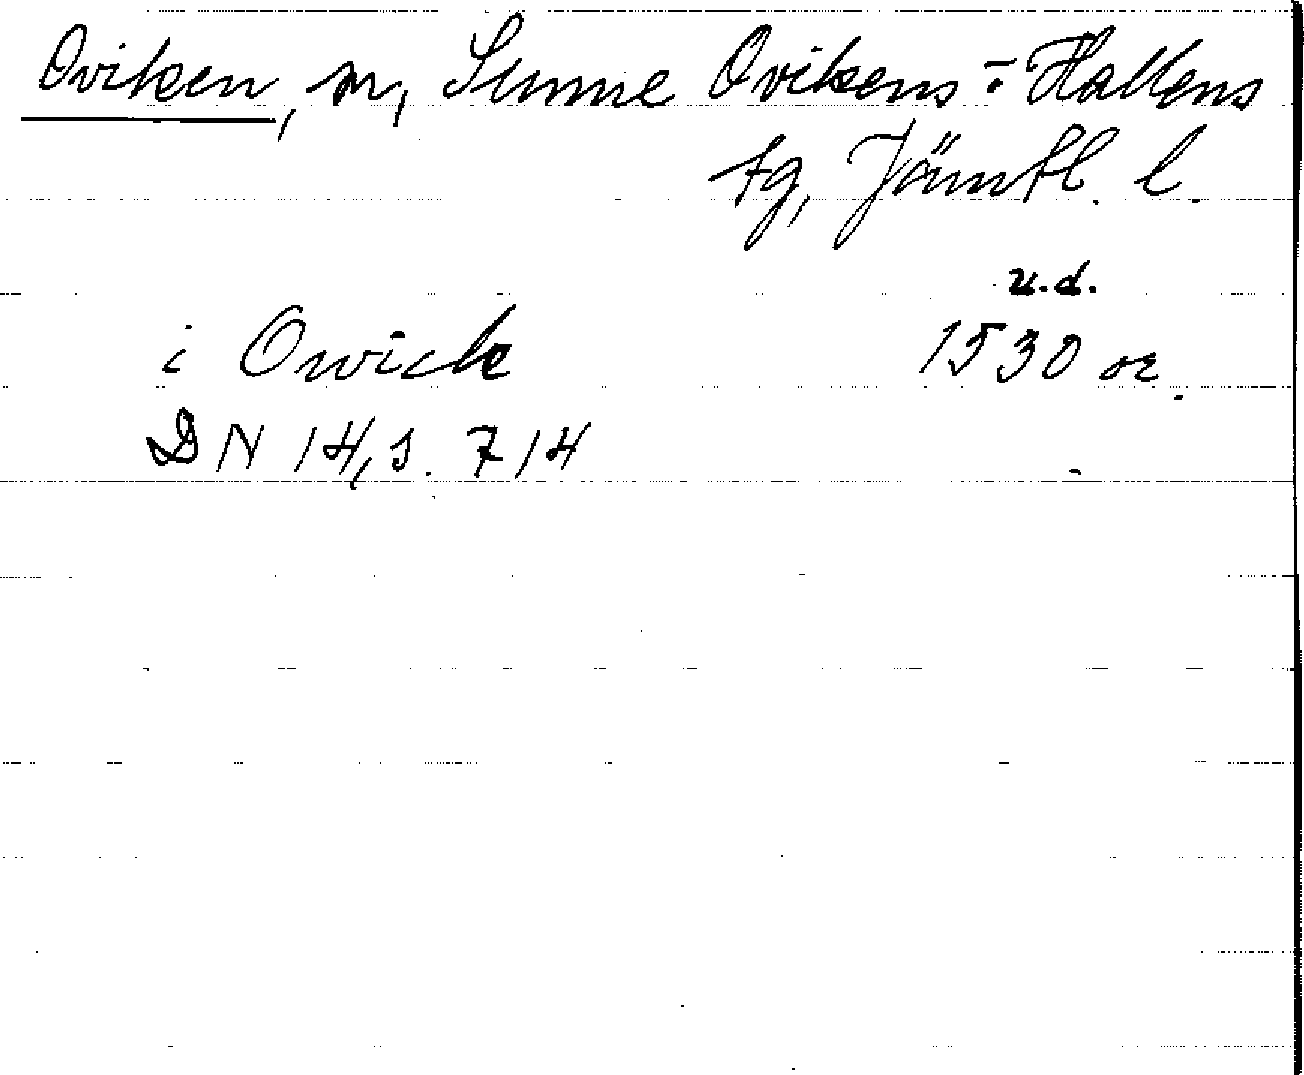 Oviken, sn, Sunne Ovikens o Hallens
tg, Jämtl. l.
u.d.
i Owick 1530 or.
DN 14, s. 714